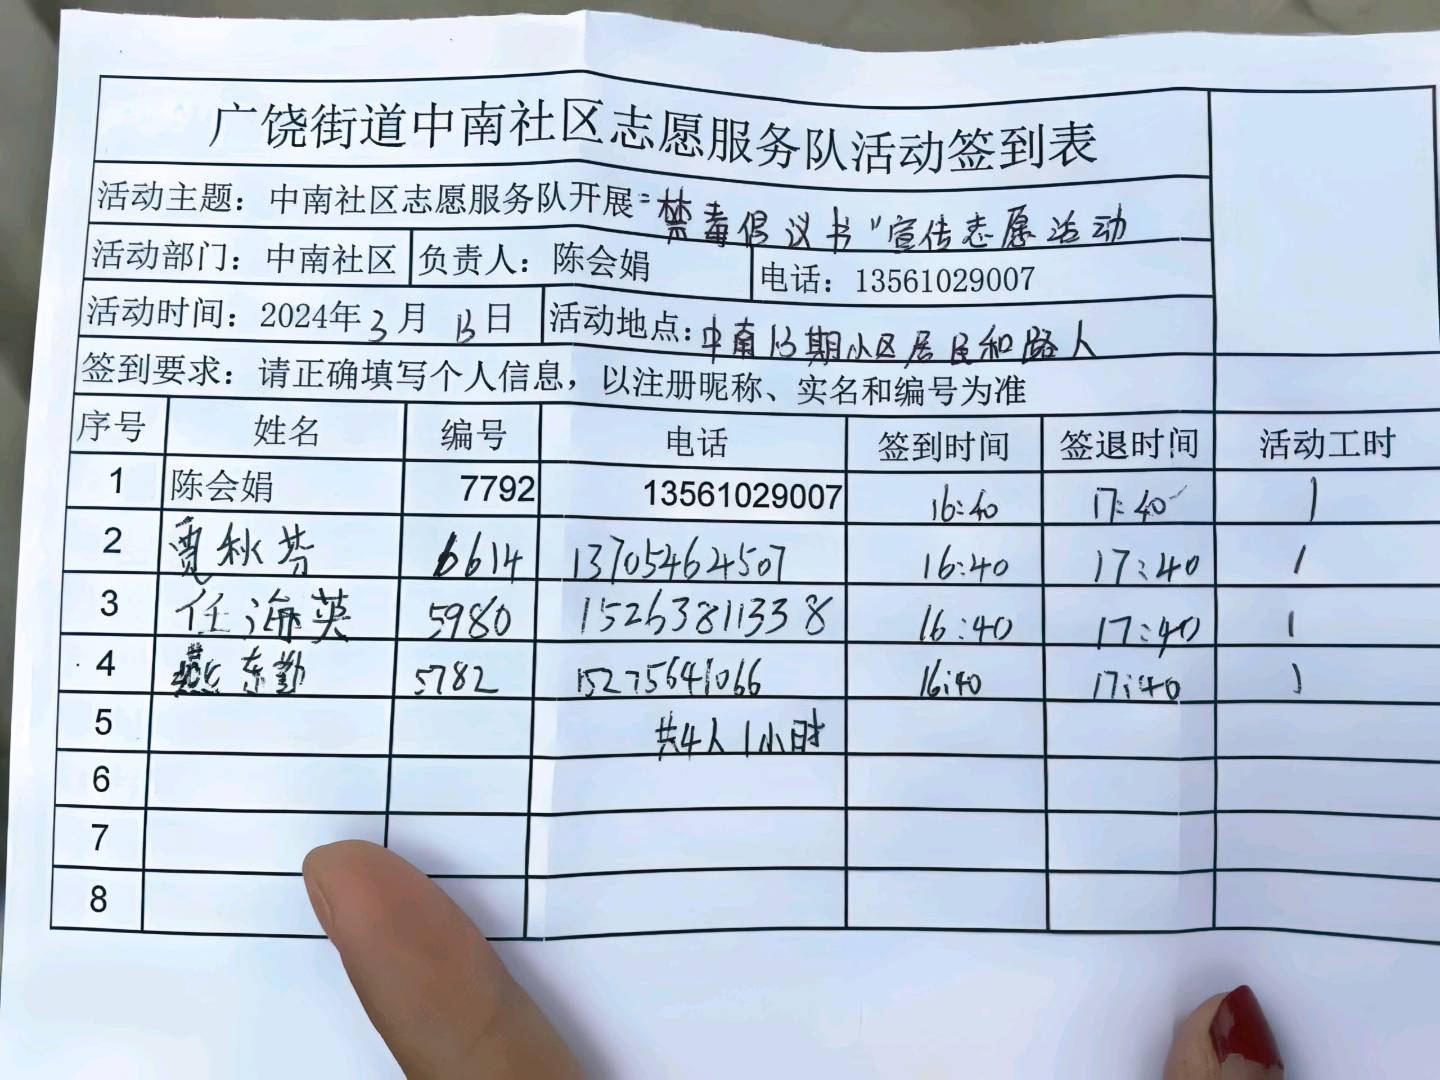 广饶街道中南社区志愿服务队活动签到表
活动主题：中南社区志愿服务队开展“禁毒倡议书”宣传志愿活动
活动部门：中南社区 负责人：陈会娟 电话：13561029007
活动时间：2024年3月13日 活动地点：中南13期小区居民和路人
签到要求：请正确填写个人信息，以注册昵称、实名和编号为准
序号 姓名 编号 电话 签到时间 签退时间 活动工时
1 陈会娟 7792 13561029007 16:40 17:40 1
2 贾秋芬 6614 13705464507 16:40 17:40 1
3 任海英 5980 15263811338 16:40 17:40 1
4 燕东勤 5782 15275641066 16:40 17:40 1
5 共4人1小时
6
7
8